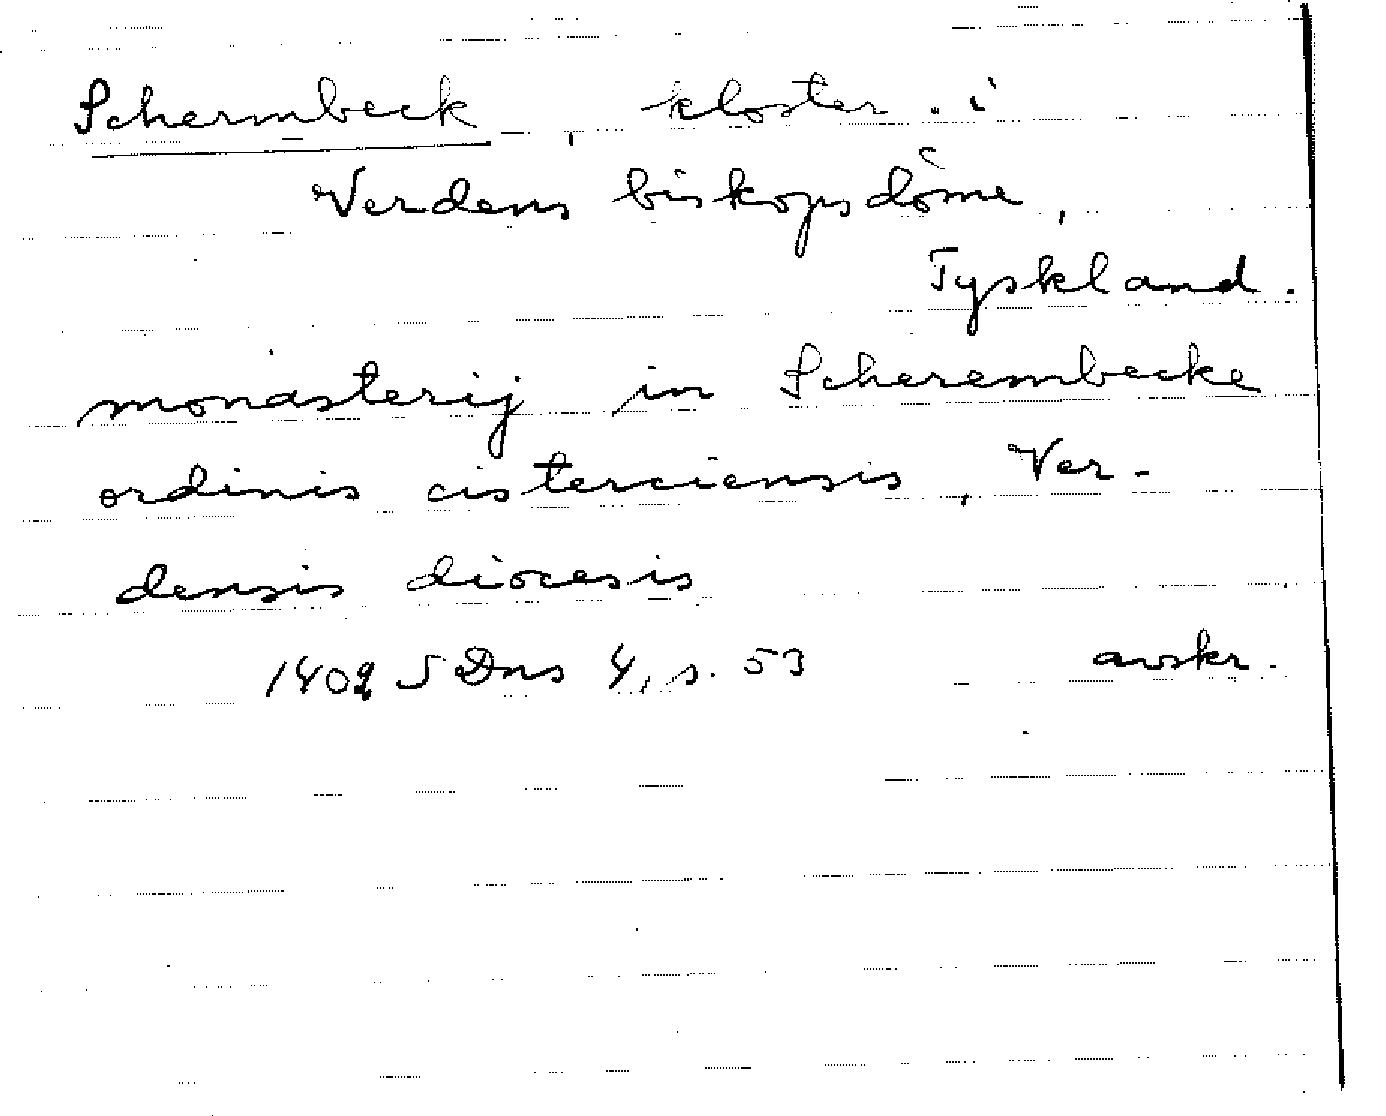 Schermbeck, kloster i
Verdens biskopsdöme,
Tyskland.
monasterij in Scherembecke
ordinis cisterciensis, Ver-
densis diocesis
1402 SDns 4, s. 53 avskr.